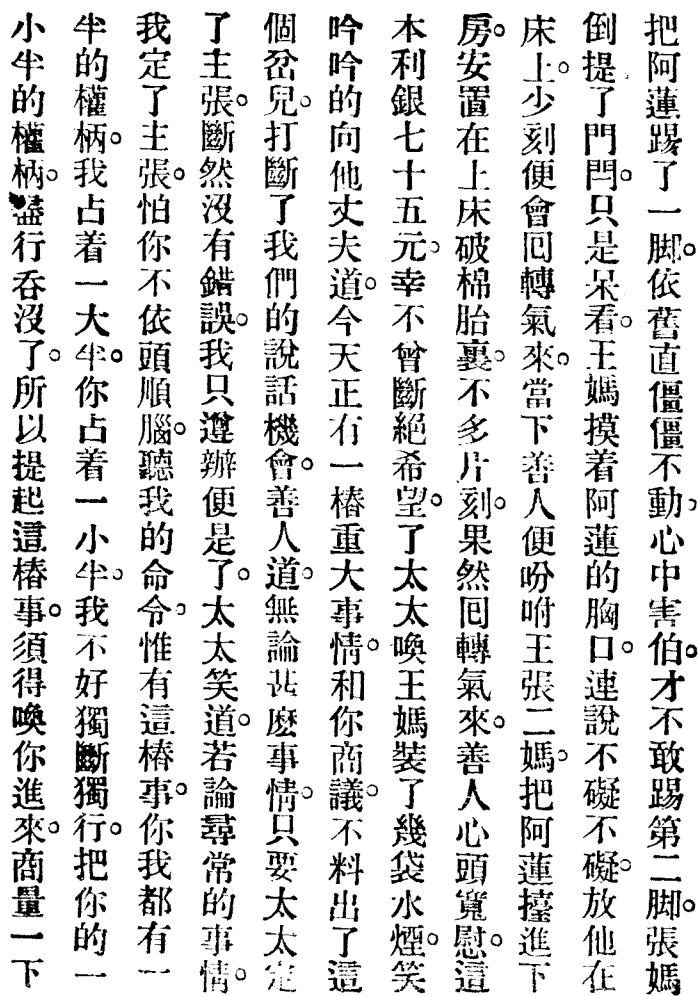 把阿蓮踢了一脚。依舊直僵僵不動。心中害怕。才不敢踢第二脚。張媽
倒提了門閂。只是呆看。王媽摸着阿蓮的胸口。連說不礙不礙。放他在
床上。少刻便會囘轉氣來。當下善人便吩咐王張二媽。把阿蓮擡進下
房。安置在上床破棉胎裏。不多片刻。果然囘轉氣來。善人心頭寬慰。這
本利銀七十五元。幸不曾斷絕希望。了太太喚王媽裝了幾袋水煙。笑
吟吟的向他丈夫道。今天正有一樁重大事情。和你商議。不料出了這
個岔兒。打斷了我們的說話機會。善人道。無論甚麽事情。只要太太定
了主張。斷然沒有錯誤。我只遵辦便是了。太太笑道。若論尋常的事情。
我定了主張。怕你不依頭順腦。聽我的命令。惟有這樁事。你我都有一
半的權柄。我占着一大半。你占着一小半。我不好獨斷獨行。把你的一
小半的權柄。盡行吞沒了。所以提起這樁事。須得喚你進來。商量一下